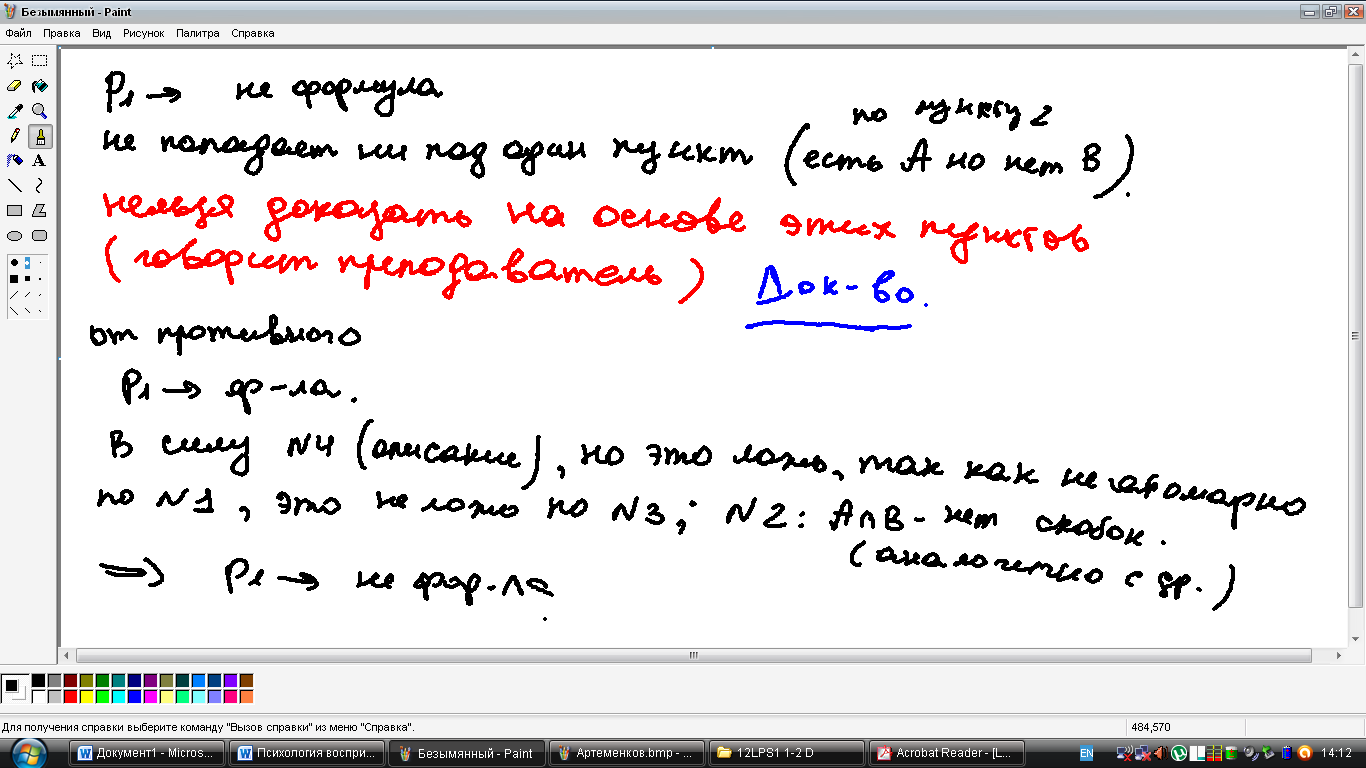 Безымянный - Paint
Файл Правка Вид Рисунок Палитра Справка
P₁ → не формула
по пункту 2
не попадает ни под один пункт (есть A но нет B).
нельзя доказать на основе этих пунктов
(говорит преподаватель)
Док-во.
от противного
P₁ → ф-ла.
В силу N4 (описание), но это ложь, так как не атомарно
по N1, это не ложо по N3; N2: A∩B - нет скобок.
(аналогично с др.)
⇒ P₁ → не фор-ла.
Для получения справки выберите команду "Вызов справки" из меню "Справка".
484,570
Документ1 - Micros... Психология воспри... Безымянный - Paint Артеменков.bmp - ... 12LPS1 1-2 D Acrobat Reader - [L... EN 14:12